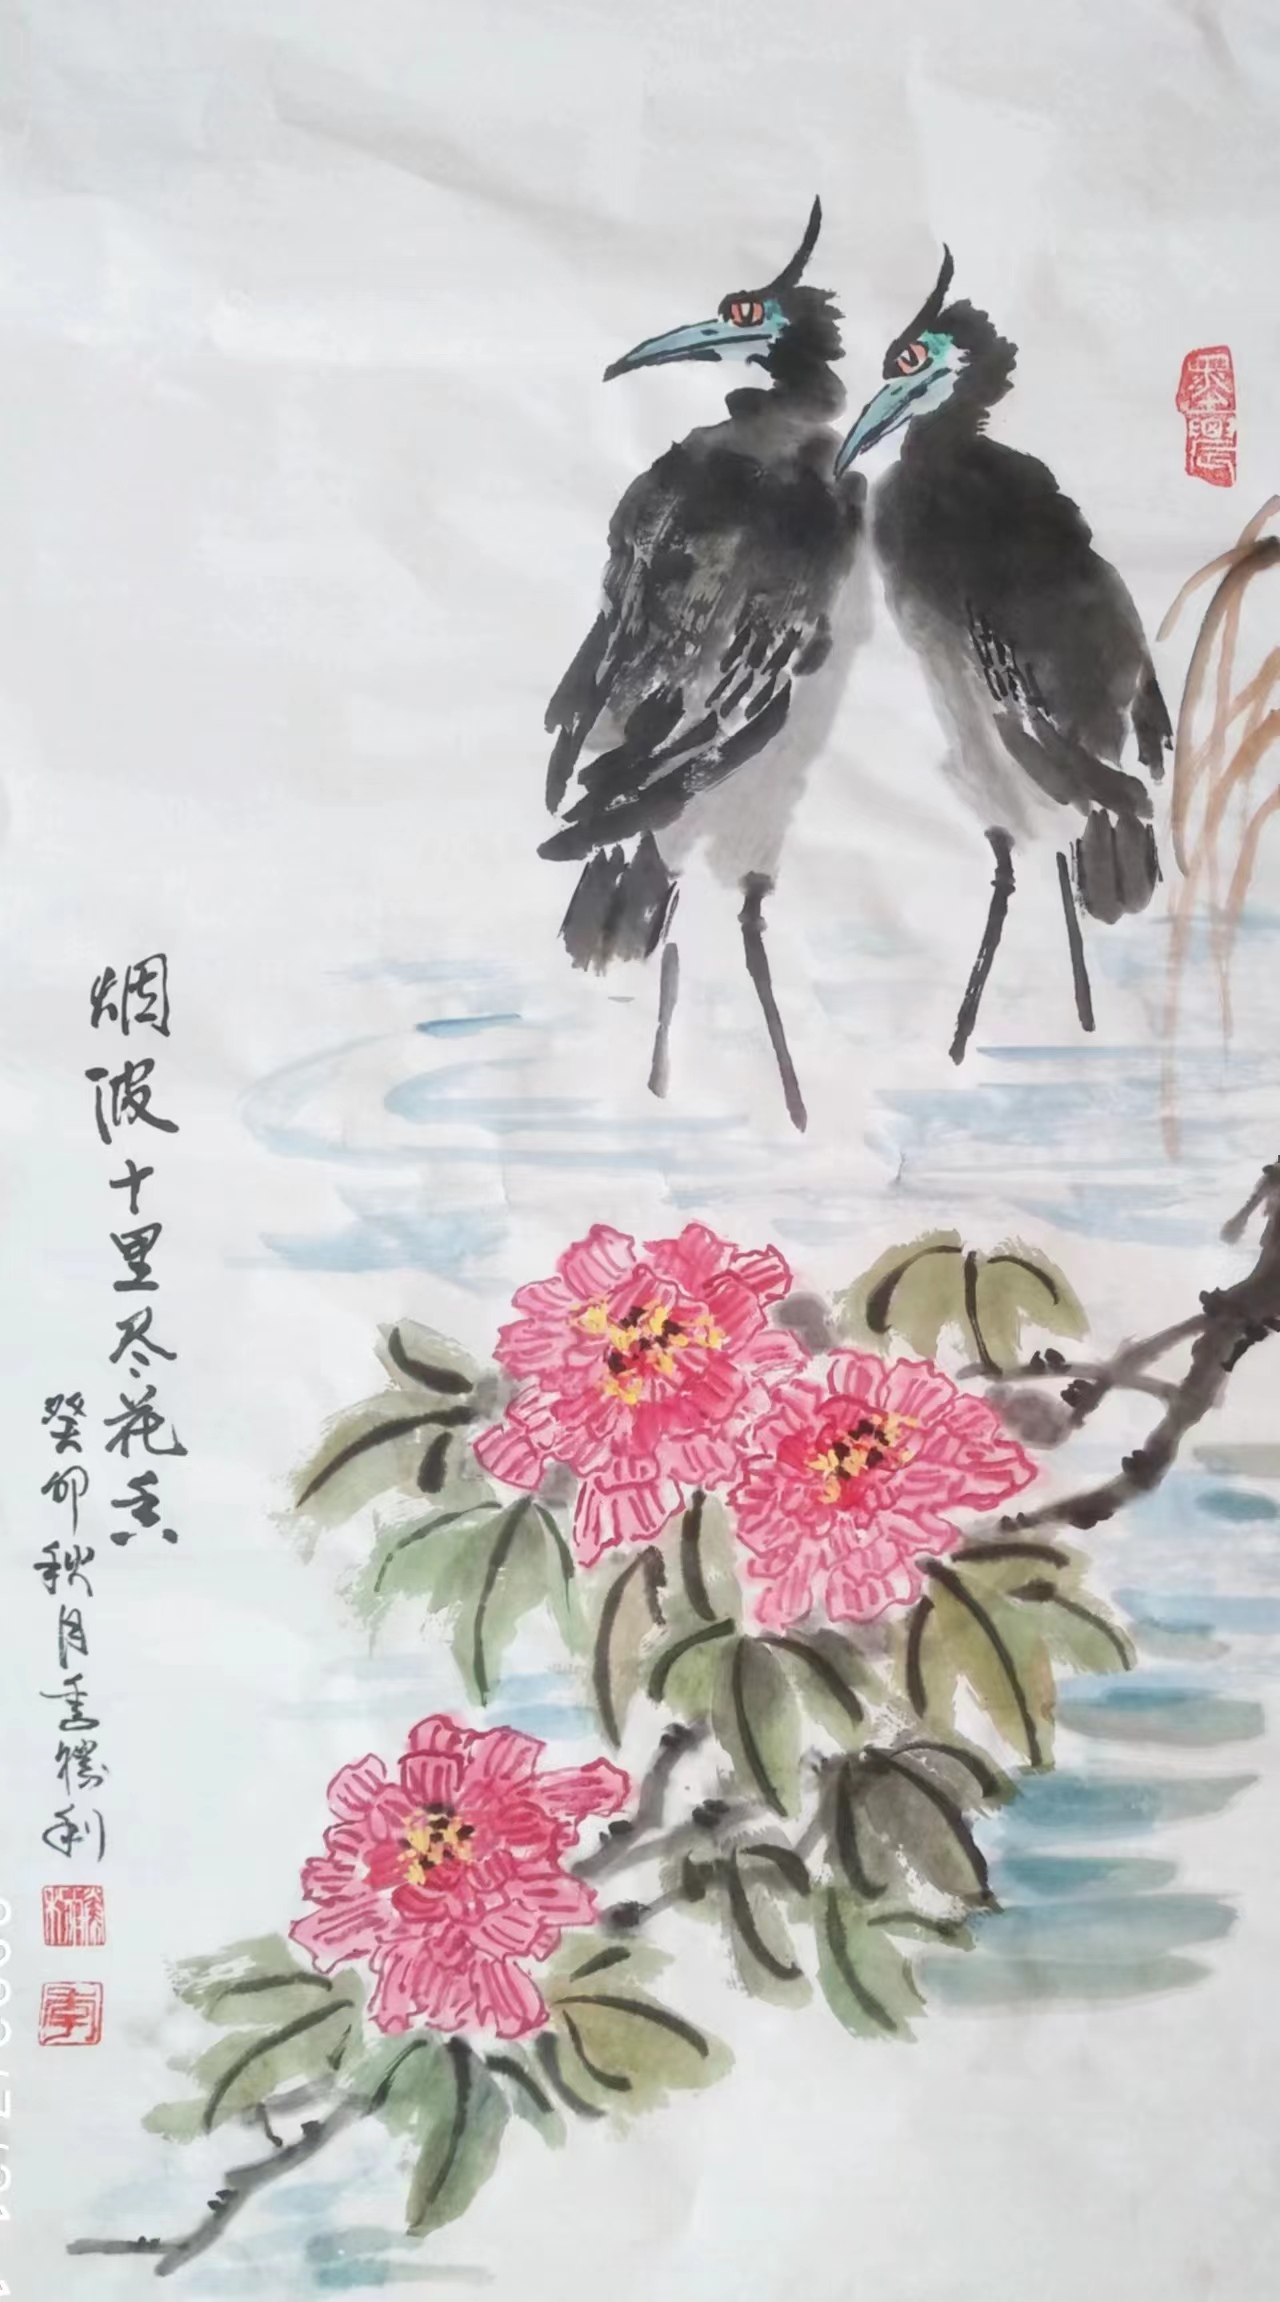 烟波十里尽花香
癸卯秋月季胜利